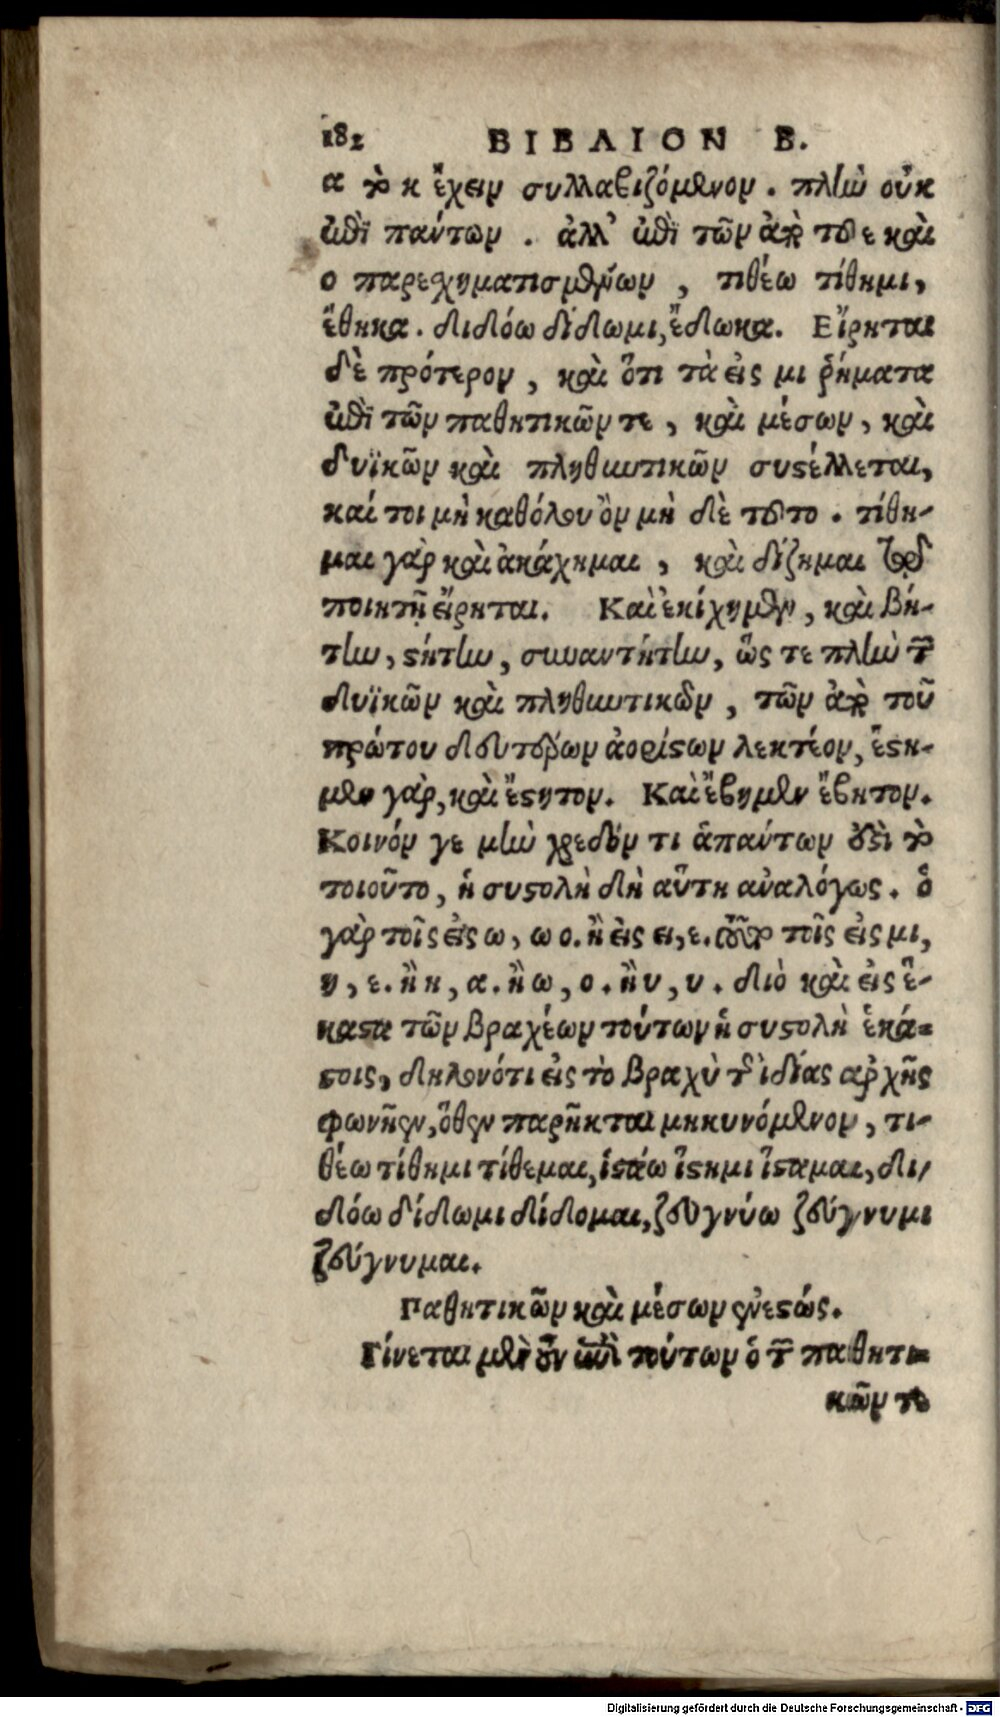 182 ΒΙΒΛΙΟΝ Β.
α τὸ κ ἔχειν συλλαβιζόμενον. πλὴν οὐκ
ἐπὶ πάντων. ἀλλ' ἐπὶ τῶν ἀπὸ τοῦ ε καὶ
ο παρεσχηματισμένων, τιθέω τίθημι,
ἔθηκα. διδόω δίδωμι, ἔδωκα. Εἴρηται
δὲ πρότερον, καὶ ὅτι τὰ εἰς μι ῥήματα
ἐπὶ τῶν παθητικῶν τε, καὶ μέσων, καὶ
δυϊκῶν καὶ πληθυντικῶν συστέλλεται,
καί τοι μὴ καθόλου ὂν μὴ δὲ τοῦτο. τίθη-
μαι γὰρ καὶ ἀκάχημαι, καὶ δίζημαι
ποιητῇ εἴρηται. Καὶ ἐκίχημεν, καὶ βή-
την, στήτην, συναντήτην, ὥς τε πλὴν τῶν
δυϊκῶν καὶ πληθυντικῶν, τῶν ἀπὸ τοῦ
πρώτου δευτέρων ἀορίστων λεκτέον, ἔστη-
μεν γάρ, καὶ ἔστητον. Καὶ ἔβημεν ἔβητον.
Κοινόν γε μὴν σχεδόν τι ἁπάντων ἐστὶ τὸ
τοιοῦτο, ἡ συστολὴ δὴ αὕτη ἀναλόγως. ὃ
γὰρ τοῖς εἰς ω, ω ο. ἢ εἰς ει, ε. τοῖς εἰς μι,
η, ε. ἢ η, α. ἢ ω, ο. ἢ υ, υ. διὸ καὶ εἰς ἕ-
καστα τῶν βραχέων τούτων ἡ συστολὴ ἑκά-
στοις, δηλονότι εἰς τὸ βραχὺ τῆς ἰδίας ἀρχῆς
φωνῆεν, ὅθεν παρῆκται μηκυνόμενον, τι-
θέω τίθημι τίθεμαι, ἱστάω ἵστημι ἵσταμαι, δι-
δόω δίδωμι δίδομαι, ζευγνύω ζεύγνυμι
ζεύγνυμαι.
Παθητικῶν καὶ μέσων ἐνεστώς.
Γίνεται μὲν οὖν ἐπὶ τούτων ὁ τῶν παθητι-
κῶν τε
Digitalisierung gefördert durch die Deutsche Forschungsgemeinschaft - DFG